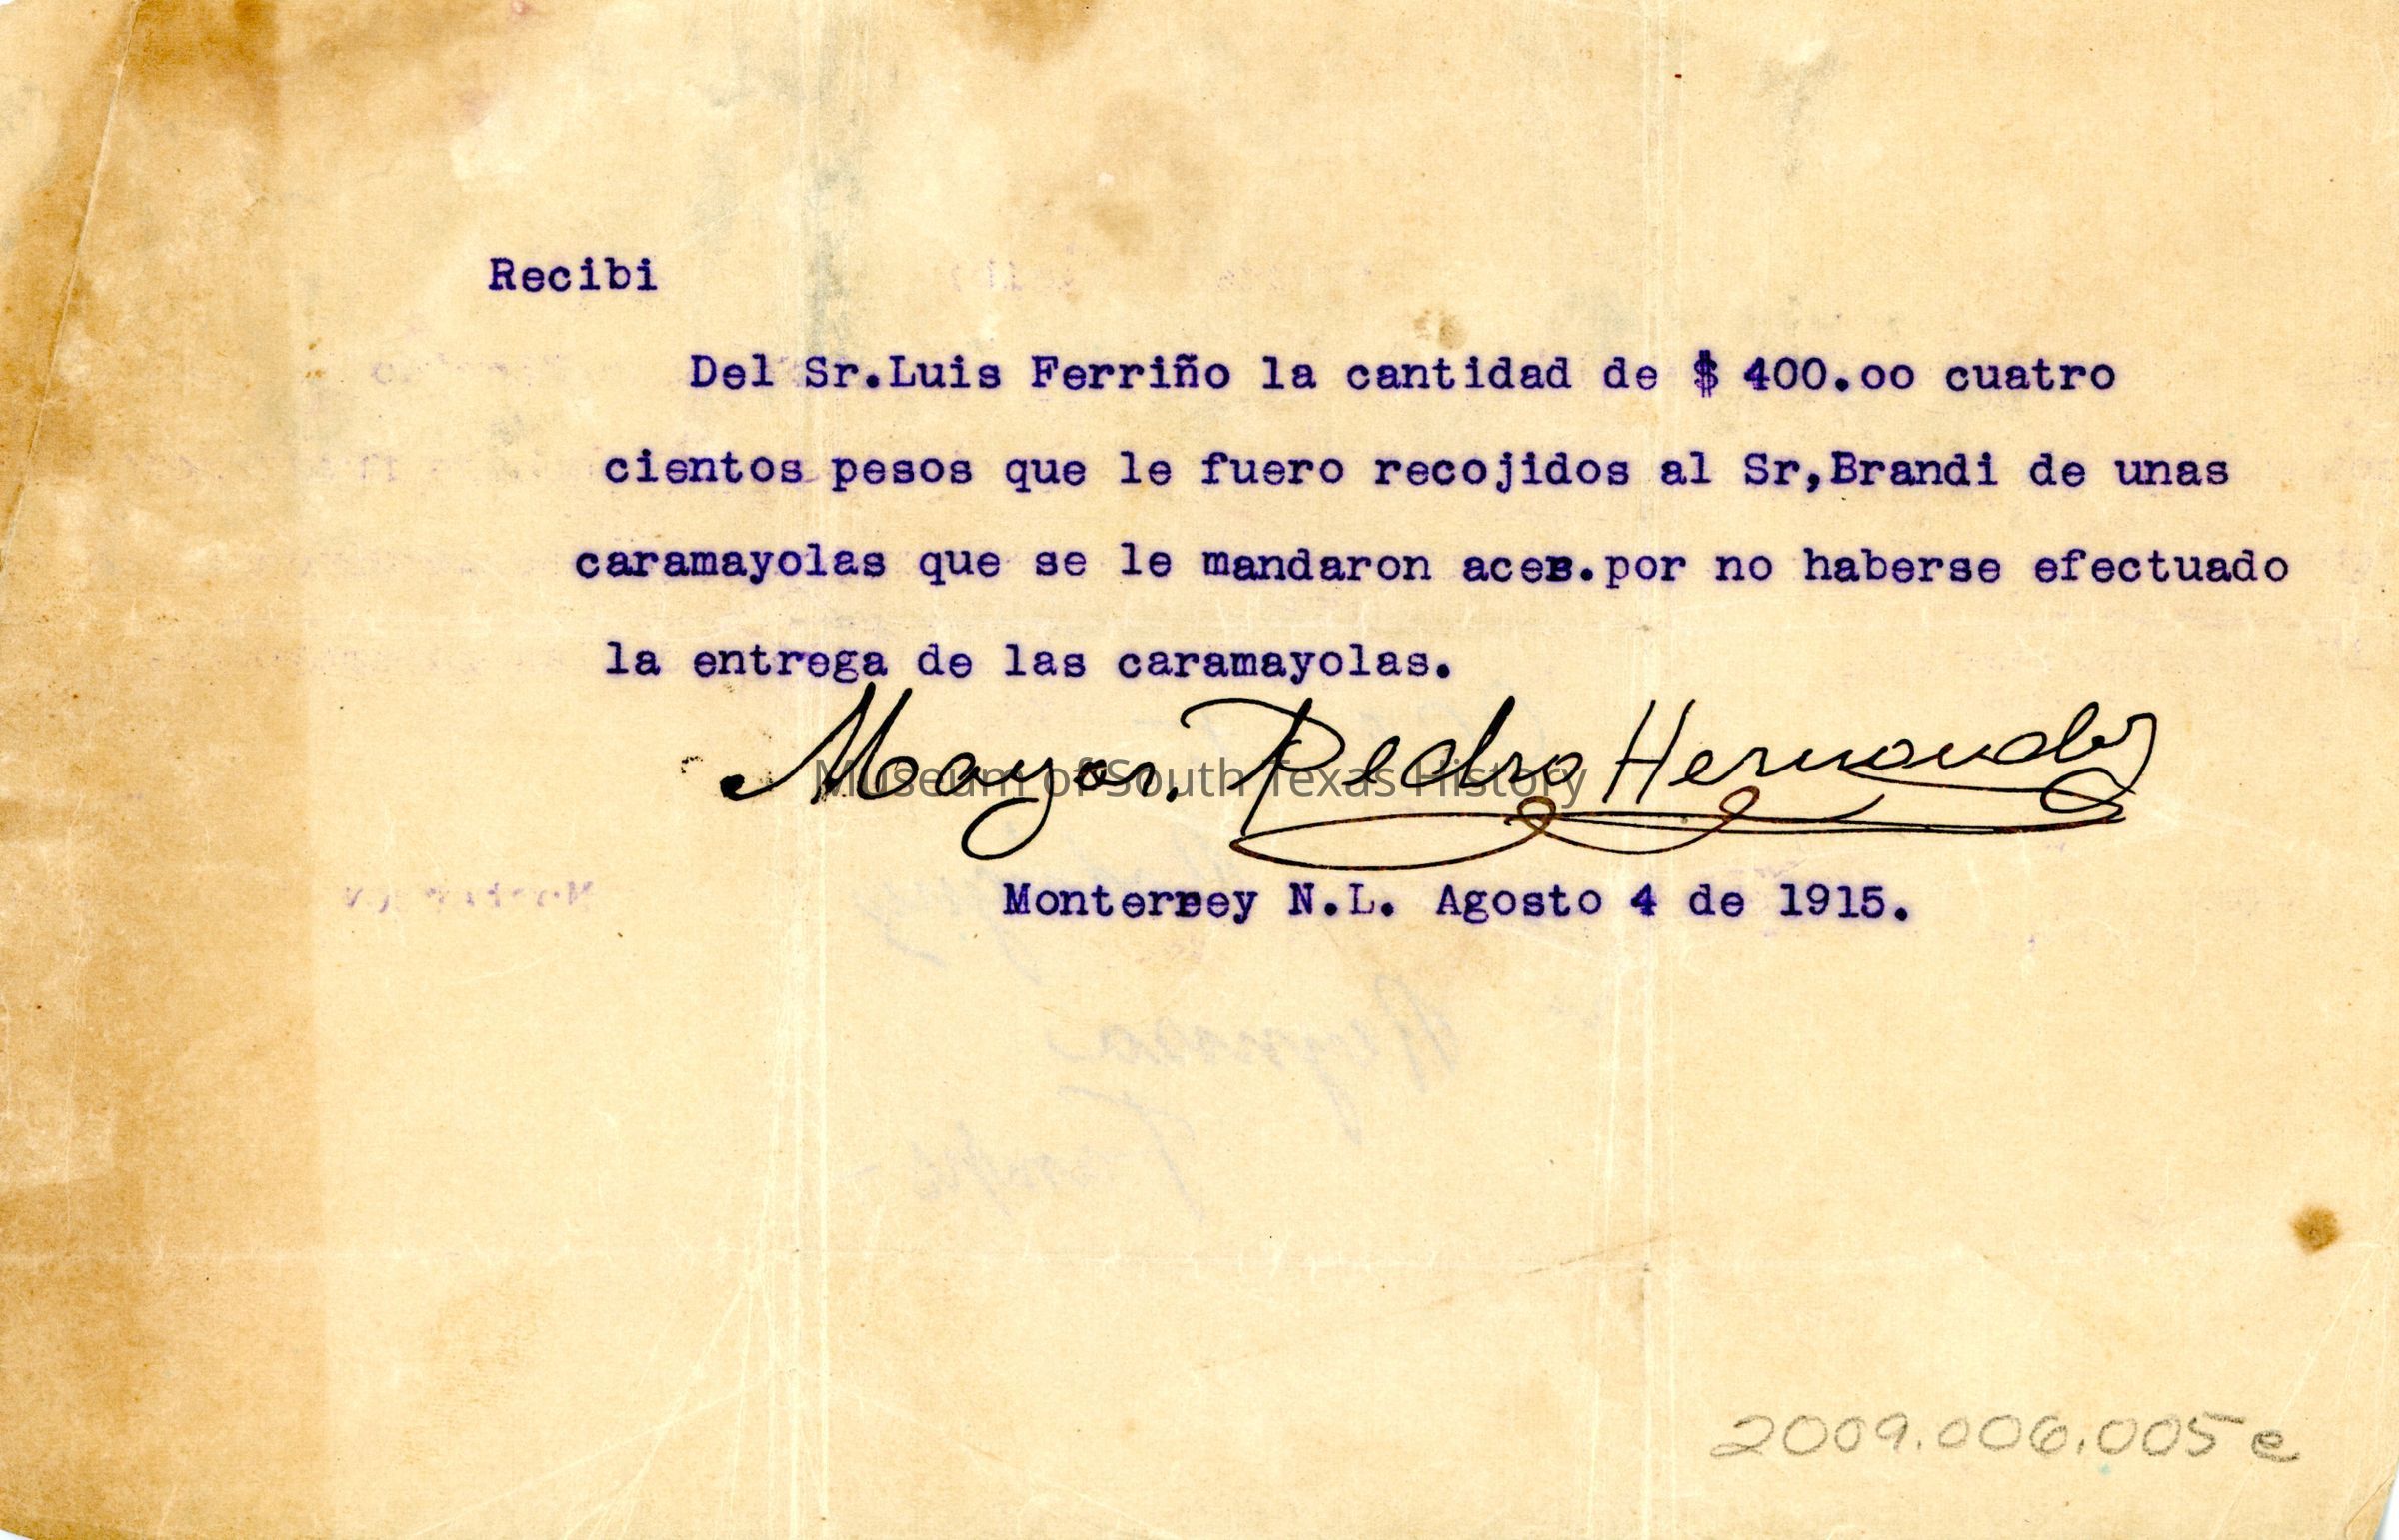 Recibi
Del Sr.Luis Ferriño la cantidad de $ 400.oo cuatro
cientos pesos que le fuero recojidos al Sr,Brandi de unas
caramayolas que se le mandaron acer.por no haberse efectuado
la entrega de las caramayolas.
Mayor. Pedro Hernandez
Museum of South Texas History
Monterrey N.L. Agosto 4 de 1915.
2009.006.005e